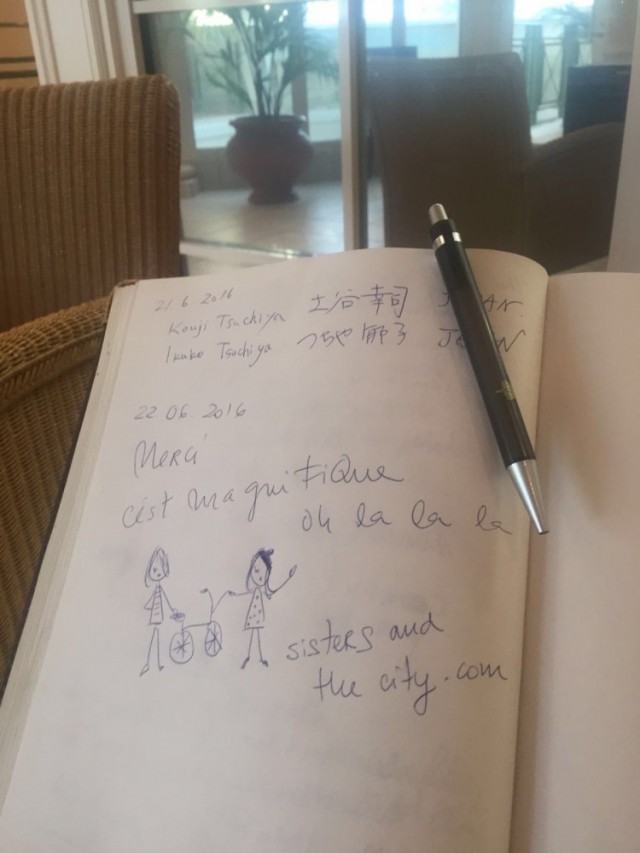 21.6 2016
Kouji Tsuchiya 土谷幸司 JAPAN.
Ikuko Tsuchiya JAPAN
22 06. 2016
Merci
c'est magnifique
oh la la la
sisters and
the city.com